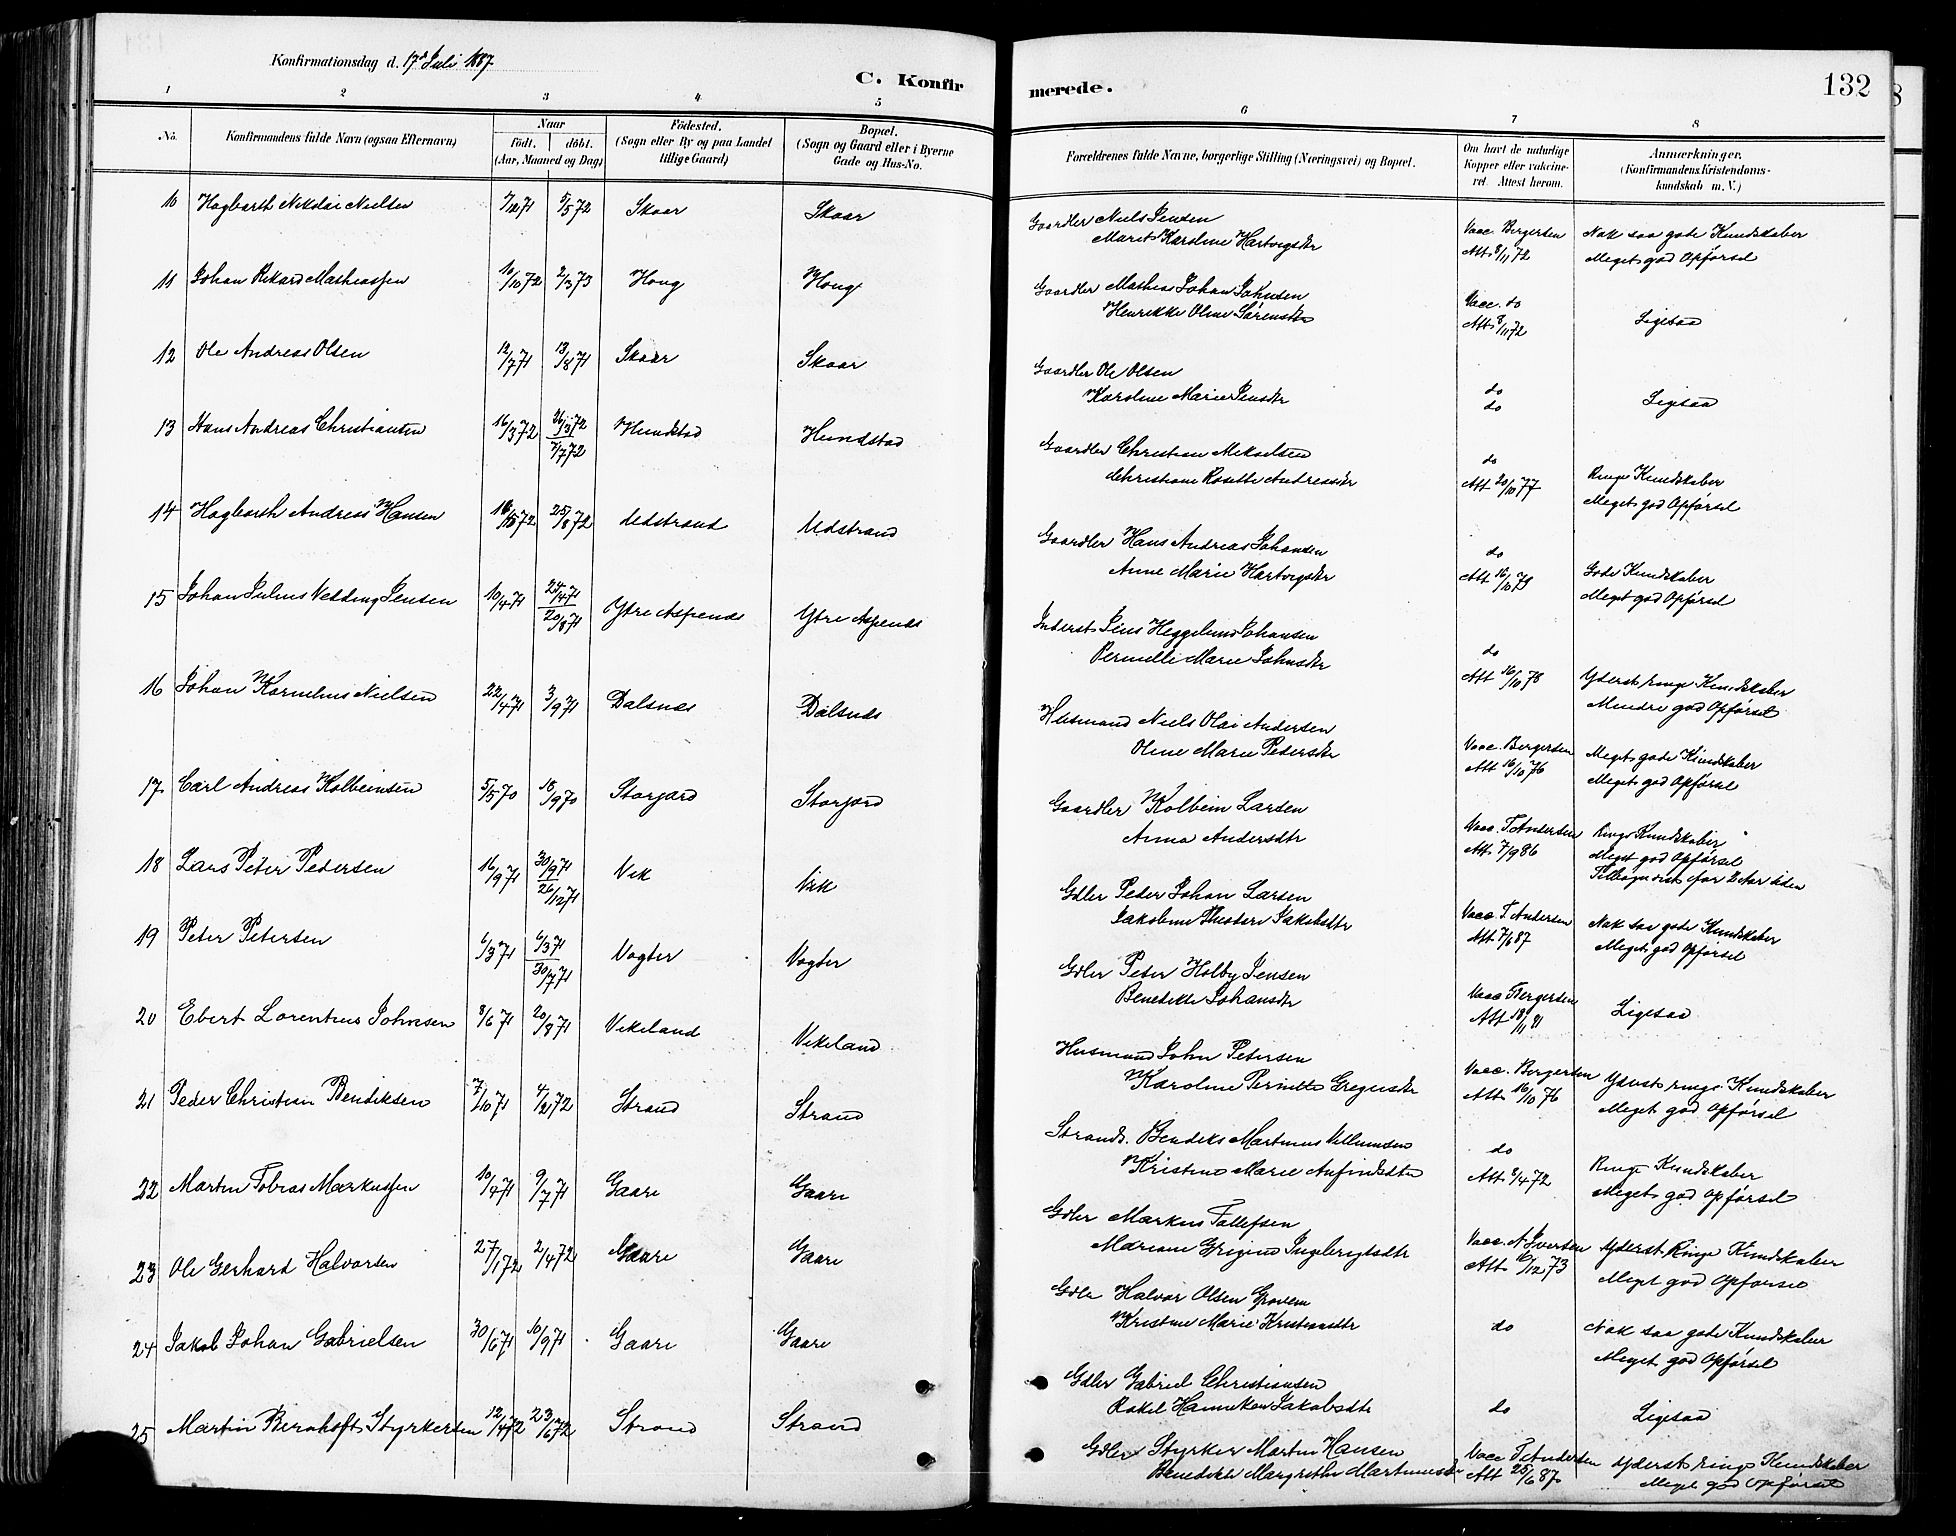 Konfirmationsdag d. 17de Juli 1887
C. Konfirmerede.
132
1 2 3 4 5 6 7 8
No.
Konfirmandens fulde Navn (ogsaa Efternavn)
Naar
födt. döbt.
(Aar, Maaned og Dag)
Födested.
(Sogn eller By og paa Landet
tillige Gaard)
Bopæl.
(Sogn og Gaard eller i Byerne
Gade og Hus-No.
Forældrenes fulde Navne, borgerlige Stilling (Næringsvei) og Bopæl.
Om havt de naturlige
Kopper eller vakcine-
ret. Attest herom.
Anmærkninger.
(Konfirmandens Kristendoms-
kundskab m. V.)
10 Hagbarth Nikolai Nielsen 7/12 71 5/5 72 Skaar Skaar Gaardbr Niels Jensen Vacc. Bergersen Nok saa gode Kundskaber
Maret Karoline Hartvigsdtr Att 8/11 72 Meget god Opførsel
11 Johan Rikard Mathiassen 10/10 72 2/3 73 Houg Houg Gaardbr Mathias Johan Johnsen Vacc. do
Henrikke Oline Sørensdtr Att 8/11 72 Ligesaa
12 Ole Andreas Olsen 12/7 71 13/8 71 Skaar Skaar Gaardbr Ole Olsen do
Karoline Marie Jensdtr do Ligesaa
13 Hans Andreas Christiansen 16/3 72 26/3 72 Hundstad Hundstad Gaardbr Christian Mikaelsen do Ringe Kundskaber
7/7 72 Christiane Rosette Andreasdtr Att 20/10 77 Meget god Opførsel
14 Hagbarth Andreas Hansen 16/5 72 25/8 72 Udstrand Udstrand Gaardbr Hans Andreas Johansen do Gode Kundskaber
Anne Marie Hartvigsdtr Att 16/10 79 Meget god Opførsel
15 Johan Julius Vedding Jensen 10/4 71 24/4 71 Ytre Aspenes Ytre Aspenes Inderst Jens Heggelund Johansen do Yderst ringe Kundskaber
20/8 71 Pernille Marie Johnsdtr Att 16/10 78 Mindre god Opførsel
16 Johan Kornelius Nielsen 22/4 71 3/9 71 Dalsnes Dalsnes Husmand Niels Olai Andersen Vacc. Bergersen Meget gode Kundskaber
Oline Marie Pedersdtr Att 16/10 76 Meget god Opførsel
17 Carl Andreas Kolbeinsen 5/5 70 18/9 70 Storjord Storjord Gaardbr Kolbein Larsen Vacc. T. Andersen Ringe Kundskaber
Anna Andersdtr Att 7/9 86 Meget god Opførsel
Tilbagevist for 2 Aar siden
18 Lars Peter Pedersen 16/9 71 30/9 71 Vik Vik Gdbr Peder Johan Larsen Vacc T. Andersen Nok saa gode Kundskaber
26/12 71 Jakobine Jakobsdtr Att 7/6 87 Meget god Opførsel
19 Peter Petersen 6/3 71 6/3 71 Vogter Vogter Gdbr Peter Holby Jensen Vacc Bergersen Ligesaa
30/7 71 Benedikte Johansdtr Att 18/11 81
20 Ebert Lorentius Johnsen 8/6 71 20/8 71 Vikeland Vikeland Husmand John Petersen Vacc. Bergersen Yderst ringe Kundskaber
Karoline Pernille Gregusdtr Att 16/10 76 Meget god Opførsel
21 Peder Christian Bendiksen 7/10 71 4/2 72 Strand Strand Strands. Bendiks Martinus Villumsen do Ringe Kundskaber
Kristine Marie Anfindsdtr Att 8/4 72 Meget god Opførsel
22 Martin Tobias Markussen 10/4 71 9/7 71 Gaare Gaare Gdbr Markus Tollefsen Vacc. A. Iversen Yderst Ringe Kundskaber
Mariane Grigine Ingebrigtsdtr Att 16/12 73 Meget god Opførsel
23 Ole Gerhard Halvorsen 27/1 72 2/4 72 Gaare Gaare Gdbr Halvor Olsen Grovem do Nok saa gode Kundskaber
Kristine Marie Kristiansdtr Meget god Opførsel
24 Jakob Johan Gabrielsen 30/6 71 10/9 71 Gaare Gaare Gdbr Gabriel Christiansen do Ligesaa
Rakel Hannekon Jakobsdtr
25 Martin Bernhoft Styrkersen 12/4 72 23/6 72 Strand Strand Gdbr Styrker Martin Hansen Vacc T. Andersen Yderst ringe Kundskaber
Benedikte Margrethe Martinusdtr Att 25/6 87 Meget god Opførsel